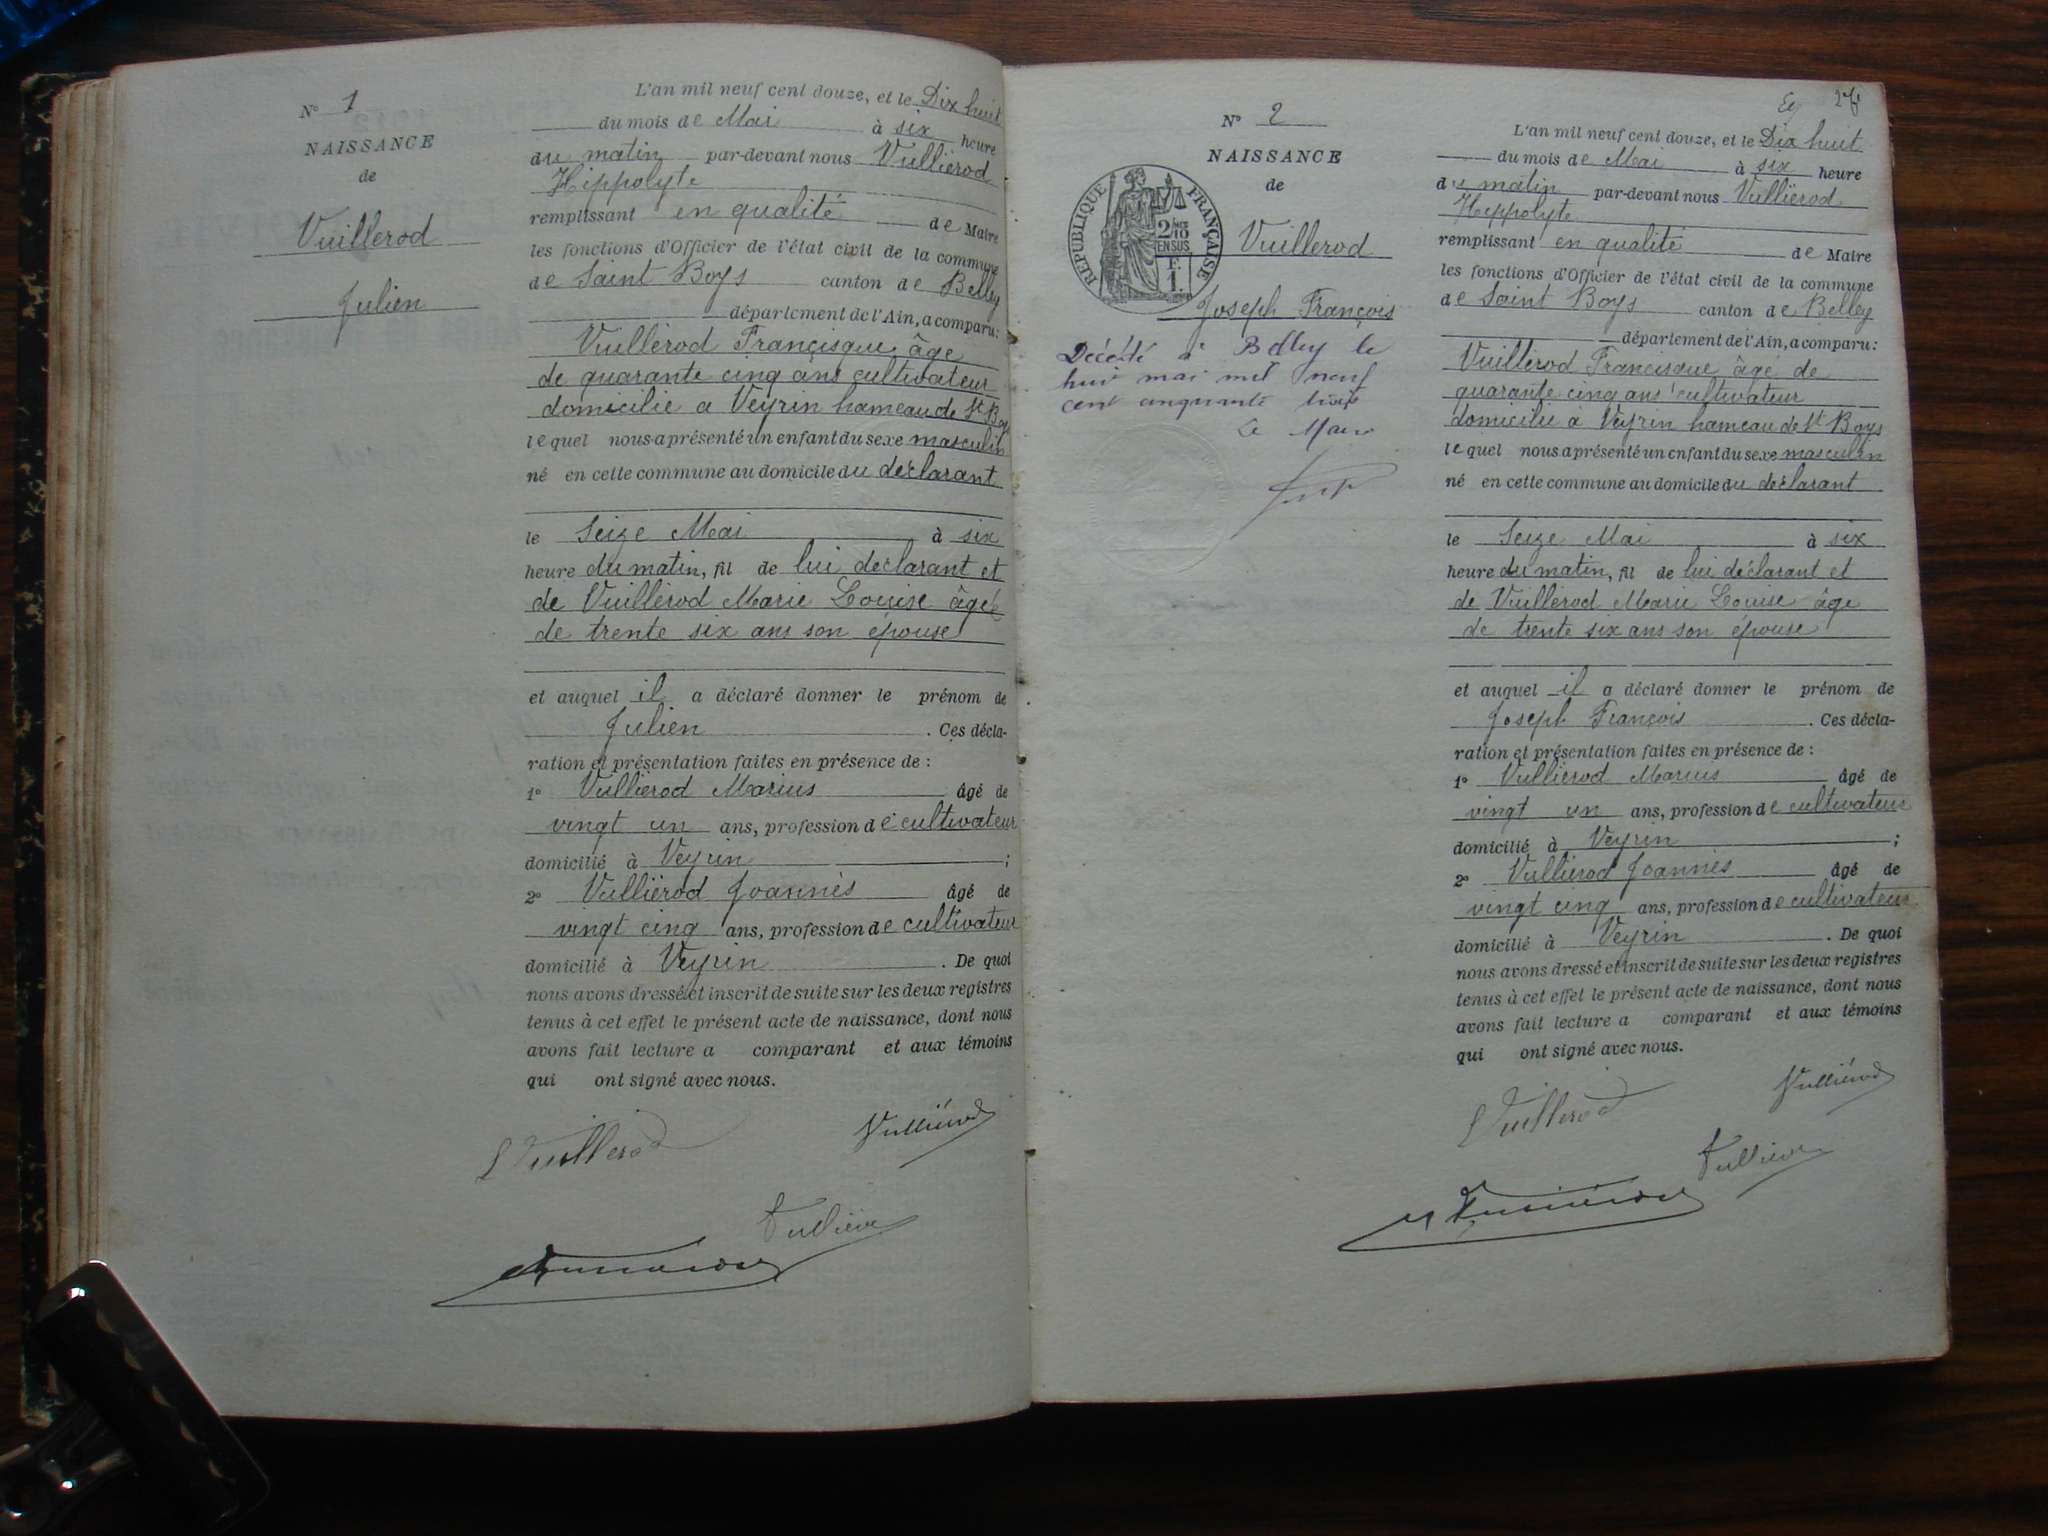 N° 1
NAISSANCE
de
Vuillerod
Julien
L'an mil neuf cent douze, et le Dix huit
du mois de Mai à six heure
du matin par-devant nous Vulliérod
Hippolyte
remplissant en qualité de Maire
les fonctions d'Officier de l'état civil de la commune
de Saint Boys canton de Belley
département de l'Ain, a comparu:
Vuillerod Francisque âge
de quarante cinq ans cultivateur
domicilie a Veyrin hameau de St Boys
lequel nous a présenté un enfant du sexe masculin
né en cette commune au domicile du déclarant
le Seize Mai à six
heure du matin, fil de lui déclarant et
de Vuillerod Marie Louise âgée
de trente six ans son épouse
et auquel il a déclaré donner le prénom de
Julien . Ces décla-
ration et présentation faites en présence de :
1° Vulliérod Marius âgé de
vingt un ans, profession de cultivateur
domicilié à Veyrin ;
2° Vulliérod Joannès âgé de
vingt cinq ans, profession de cultivateur
domicilié à Veyrin . De quoi
nous avons dressé et inscrit de suite sur les deux registres
tenus à cet effet le présent acte de naissance, dont nous
avons fait lecture a comparant et aux témoins
qui ont signé avec nous.
Vuillerod
Vulliérod
N° 2
NAISSANCE
de
RÉPUBLIQUE FRANÇAISE
2/10
EN SUS
F.
1.
Vuillerod
Joseph François
Décédé à Belley le
huit mai mil neuf
cent cinquante trois
Le Maire
L'an mil neuf cent douze, et le Dix huit
du mois de Mai à six heure
du matin par-devant nous Vulliérod
Hippolyte
remplissant en qualité de Maire
les fonctions d'Officier de l'état civil de la commune
de Saint Boys canton de Belley
département de l'Ain, a comparu:
Vuillerod Francisque âgé de
quarante cinq ans cultivateur
domicilié à Veyrin hameau de St Boys
lequel nous a présenté un enfant du sexe masculin
né en cette commune au domicile du déclarant
le Seize Mai à six
heure du matin, fil de lui déclarant et
de Vuillerod Marie Louise âge
de trente six ans son épouse
et auquel il a déclaré donner le prénom de
Joseph François . Ces décla-
ration et présentation faites en présence de :
1° Vulliérod Marius âgé de
vingt un ans, profession de cultivateur
domicilié à Veyrin ;
2° Vulliérod Joannès âgé de
vingt cinq ans, profession de cultivateur
domicilié à Veyrin . De quoi
nous avons dressé et inscrit de suite sur les deux registres
tenus à cet effet le présent acte de naissance, dont nous
avons fait lecture a comparant et aux témoins
qui ont signé avec nous.
Vuillerod
Vulliérod